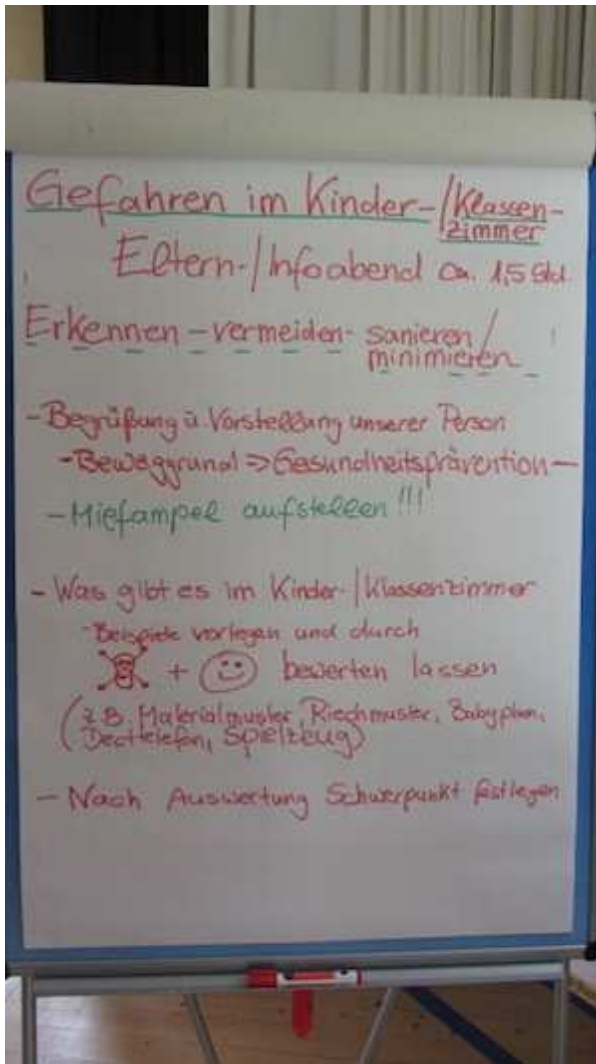 Gefahren im Kinder-/Klassen-
zimmer
Eltern-/Infoabend ca. 1,5 Std.
Erkennen - vermeiden - sanieren/
minimieren
- Begrüßung u. Vorstellung unserer Person
- Beweggrund => Gesundheitsprävention -
- Miefampel aufstellen!!!
- Was gibt es im Kinder-/Klassenzimmer
- Beispiele vorlegen und durch
+ bewerten lassen
(z.B. Materialmuster, Riechmuster, Babyphon,
Decttelefon, Spielzeug)
- Nach Auswertung Schwerpunkt festlegen